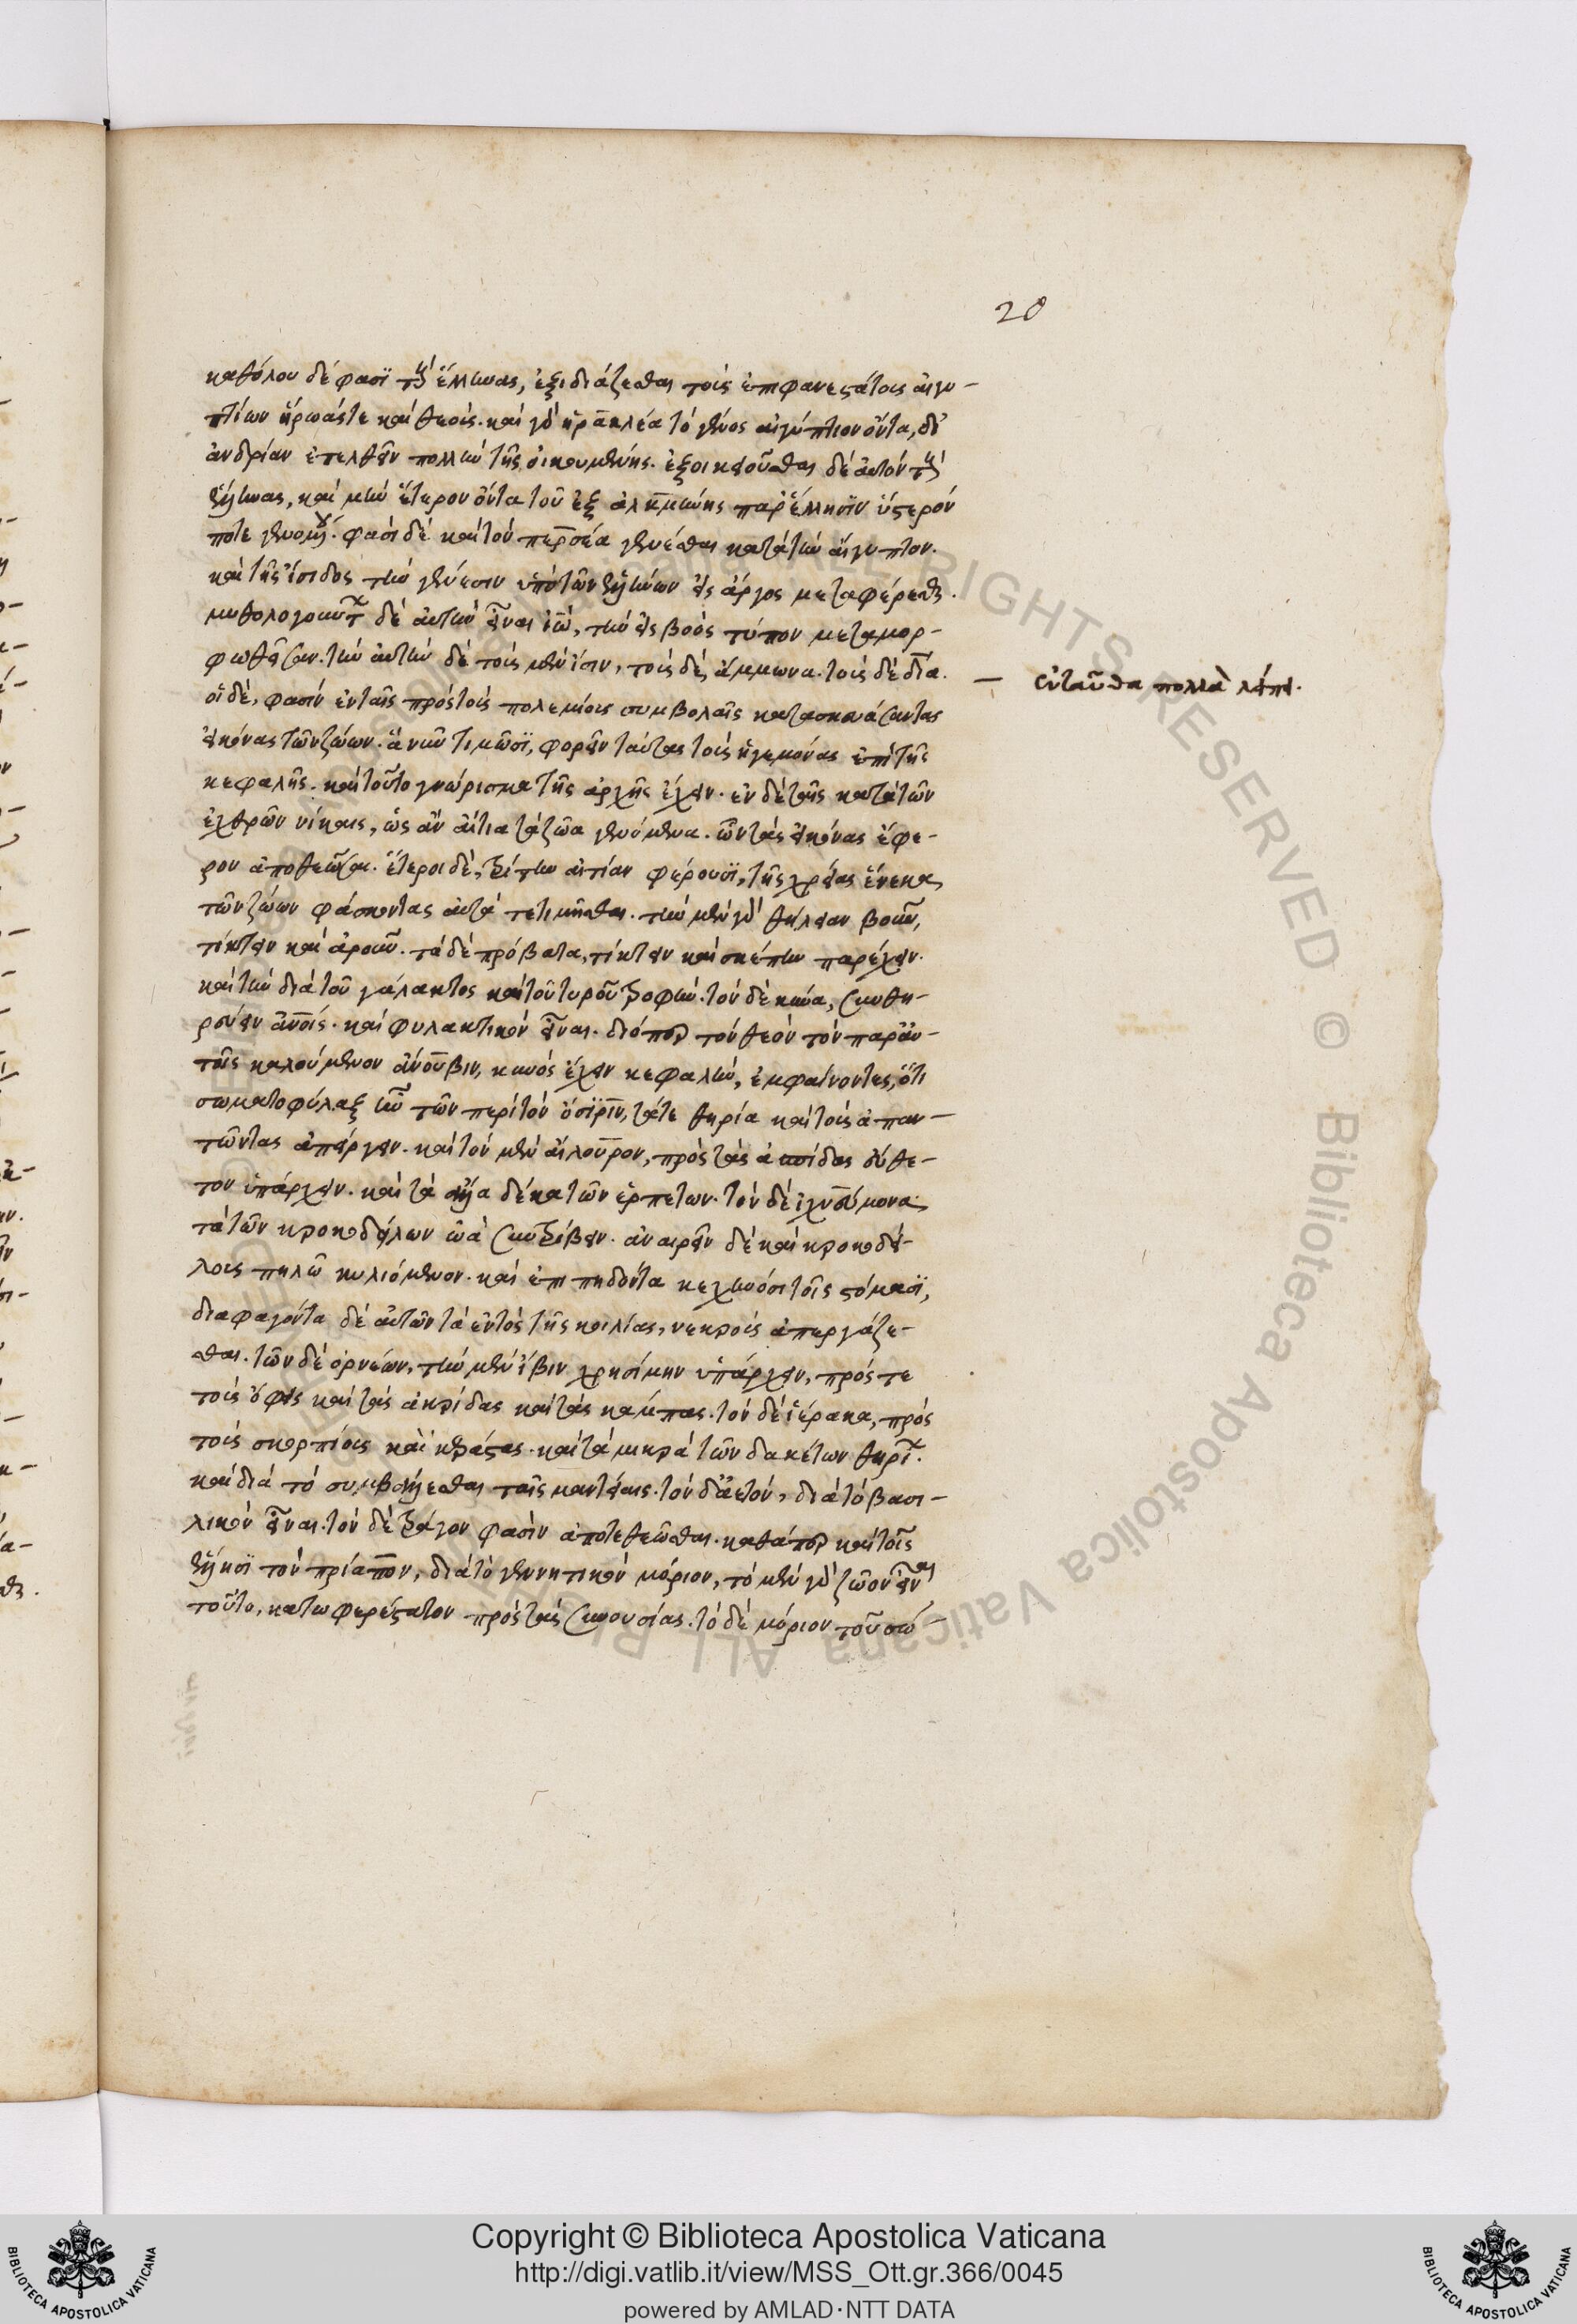 20
καθόλου δέ φασϊ τοὺς ἕλληνας, ἐξιδιάζεσθαι τοὺς ἐπιφανεστάτους αἰγυ-
πτίων ἥρωάς τε καὶ θεούς. καὶ γὰρ ἡρακλέα τὸ γένος αἰγύπτιον ὄντα, δι'
ἀνδρίαν ἐπελθεῖν πολλὴν τῆς οἰκουμένης. ἐξοικειοῦσθαι δὲ αὐτὸν τοὺς
ἕλληνας, καὶ μὴν ἕτερον ὄντα τοῦ ἐξ ἀλκμήνης παρ' ἕλλησϊν ὕστερόν
ποτε γενομένου. φασὶ δὲ καὶ τὸν περσέα γενέσθαι κατὰ τὴν αἴγυπτον.
καὶ τῆς ἴσιδος τὴν γένεσιν ὑπὸ τῶν ἑλλήνων εἰς ἄργος μεταφέρεσθαι.
μυθολογούντων δὲ αὐτὴν εἶναι ἰὼ, τὴν εἰς βοὸς τύπον μεταμορ-
φωθεῖσαν. τὴν αὐτὴν δὲ τοὺς μὲν ἴσιν, τοὺς δὲ, ἄμμωνα. τοὺς δὲ δία.
— ἐνταῦθα πολλὰ λείπει.
οἱ δὲ, φασὶν ἐν ταῖς πρὸς τοὺς πολεμίους συμβολαῖς κατασκευάσαντας
εἰκόνας τῶν ζώων. ἃ νῦν τιμῶσϊ, φορεῖν ταύτας τοὺς ἡγεμόνας ἐπὶ τῆς
κεφαλῆς. καὶ τοῦτο γνώρισμα τῆς ἀρχῆς ἔχειν. ἐν δὲ ταῖς κατὰ τῶν
ἐχθρῶν νίκαις, ὡς ἂν αἴτια τὰ ζῶα γενόμενα. ὧν τὰς εἰκόνας ἔφε-
ρον ἀποθεῶσαι. ἕτεροι δὲ, τρίτην αἰτίαν φέρουσϊ, τῆς χρείας ἕνεκα,
τῶν ζώων φάσκοντας αὐτὰ τετιμῆσθαι. τὴν μὲν γὰρ θήλειαν βοῦν,
τίκτειν καὶ ἀροῦν. τὰ δὲ πρόβατα, τίκτειν καὶ σκέπην παρέχειν.
καὶ τὴν διὰ τοῦ γάλακτος καὶ τοῦ τυροῦ τροφήν. τὸν δὲ κύνα, συνθη-
ρεύειν ἀνοις. καὶ φυλακτικὸν εἶναι. διόπερ τὸν θεὸν τὸν παρ' αὐ-
τοῖς καλούμενον ἄνουβιν, κυνὸς ἔχειν κεφαλὴν, ἐμφαίνοντες, ὅτι
σωματοφύλαξ ἦν τῶν περὶ τὸν ὄσϊριν, τά τε θηρία καὶ τοὺς ἀπαν-
τῶντας ἀπείργειν. καὶ τὸν μὲν αἴλουρον, πρὸς τὰς ἀσπίδας εὔθε-
τον ὑπάρχειν. καὶ τὰ ἄλλα δέκα τῶν ἑρπετων. τὸν δὲ ἰχνεύμονα,
τὰ τῶν κροκοδείλων ὠὰ συντρίβειν. ἀναιρεῖν δὲ καὶ κροκοδεί-
λους πηλῶ κυλιόμενον. καὶ ἐπιπηδῶντα κεχηνόσι τοῖς στόμασϊ,
διαφαγόντα δὲ αὐτῶν τὰ ἐντὸς τῆς κοιλίας, νεκροὺς ἀπεργάζε-
σθαι. τῶν δὲ ὀρνέων, τὴν μὲν ἴβιν χρησίμην ὑπάρχειν, πρός τε
τοὺς ὄφεις καὶ τὰς ἀκρίδας καὶ τὰς κάμπας. τὸν δὲ ἱέρακα, πρὸς
τοὺς σκορπίους καὶ κεράστας. καὶ τὰ μικρὰ τῶν δακέτων θηρίων.
καὶ διὰ τὸ συμβάλλεσθαι ταῖς μαντείαις. τὸν δ' ἀετὸν, διὰ τὸ βασι-
λικὸν εἶναι. τὸν δὲ τράγον φασὶν ἀποτεθεῶσθαι. καθάπερ καὶ τοῖς
ἕλλησϊ τὸν πρίαπον, διὰ τὸ γεννητικὸν μόριον, τὸ μὲν γὰρ ζῶον εἶναι
τοῦτο, κατωφερέστατον πρὸς τὰς συνουσίας. τὸ δὲ μόριον τοῦ σώ-
RIGHTS RESERVED © Biblioteca Apostolica Vaticana ALL
Copyright © Biblioteca Apostolica Vaticana
http://digi.vatlib.it/view/MSS_Ott.gr.366/0045
powered by AMLAD·NTT DATA
BIBLIOTECA APOSTOLICA VATICANA
BIBLIOTECA APOSTOLICA VATICANA